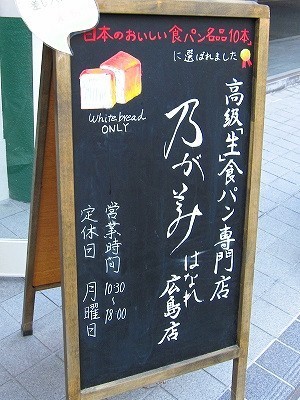 日本のおいしい食パン名品10本
に選ばれました
White bread
ONLY
高級「生」食パン専門店
乃が美 はなれ 広島店
営業時間 10:30~18:00
定休日 月曜日